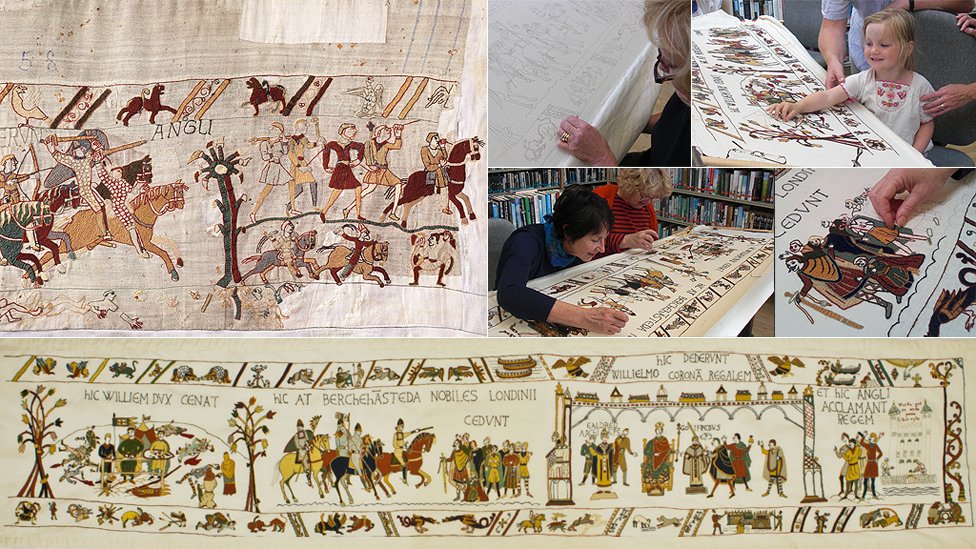 58
ANGLI
LONDINI
CEDVNT
hIC WILLIEM DVX CENAT
hIC AT BERCHEHÄSTEDA NOBILES LONDINII
CEDVNT
hIC DEDERVNT
WILLIELMO CORONĀ REGALEM
ET hIC ANGLI
ACCLAMANT
REGEM